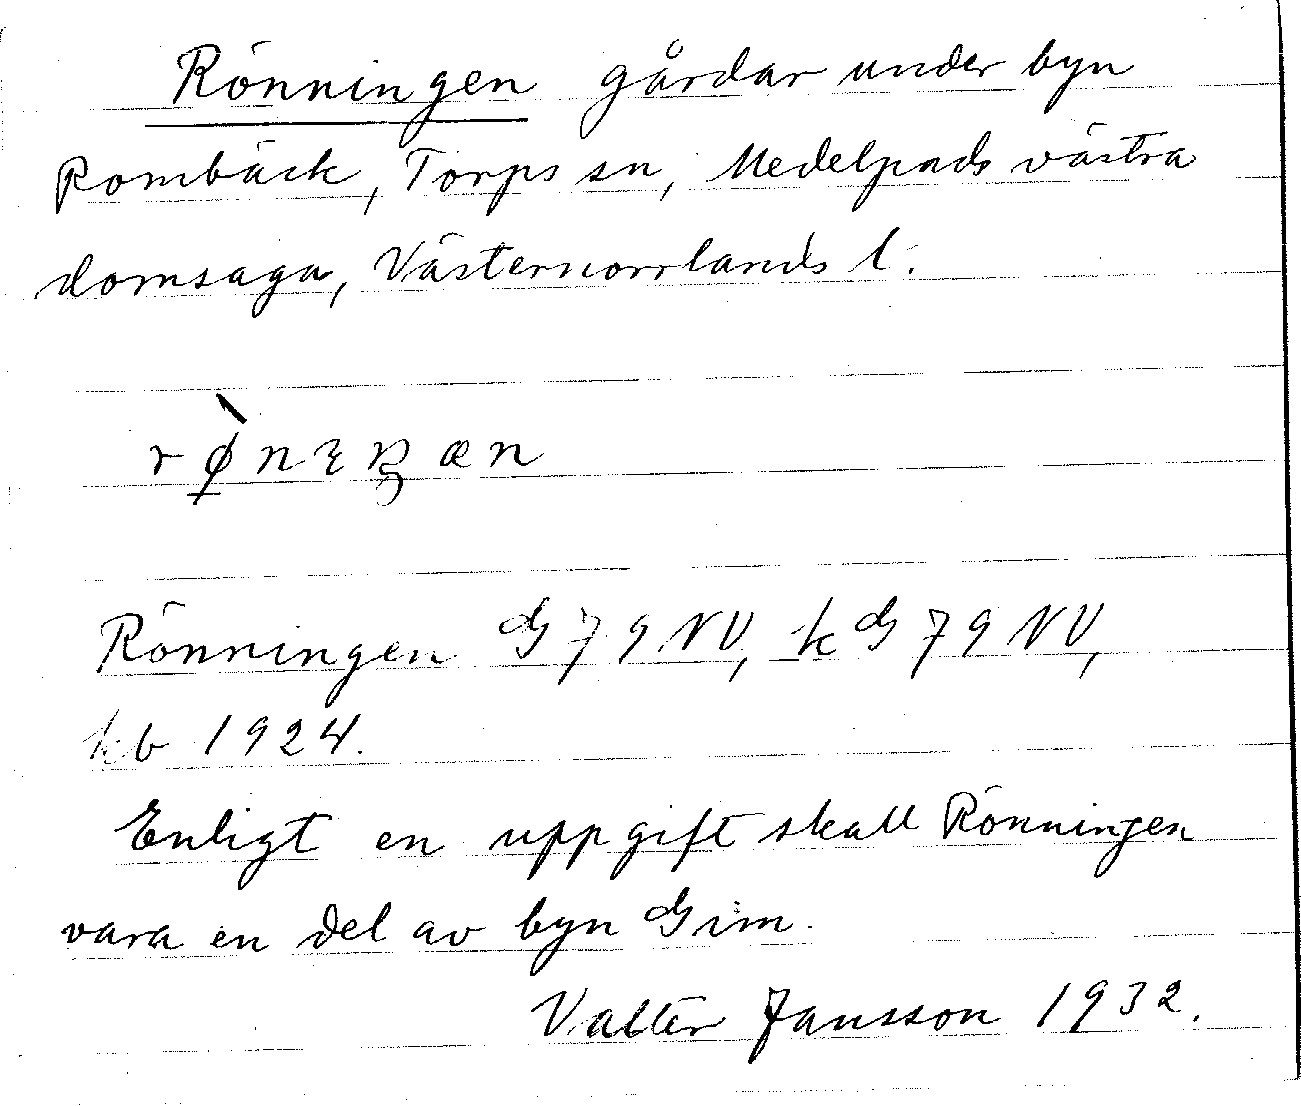 Rönningen gårdar under byn
Rombäck, Torps sn, Medelpads västra
domsaga, Västernorrlands l.
Rönningen G 79 NV, k G 79 NV,
kb 1924.
Enligt en uppgift skall Rönningen
vara en del av byn Gim.
Valter Jansson 1932.